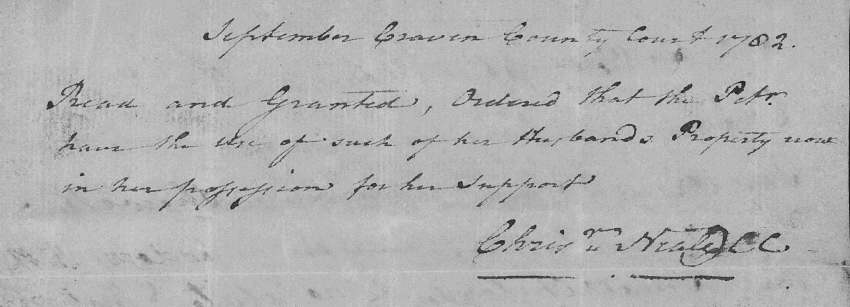 September Craven County Court 1782.
Read and Granted, Ordered that the Petr.
have the use of such of her Husbands Property now
in her possession for her Support
Chrisr. Neale CC